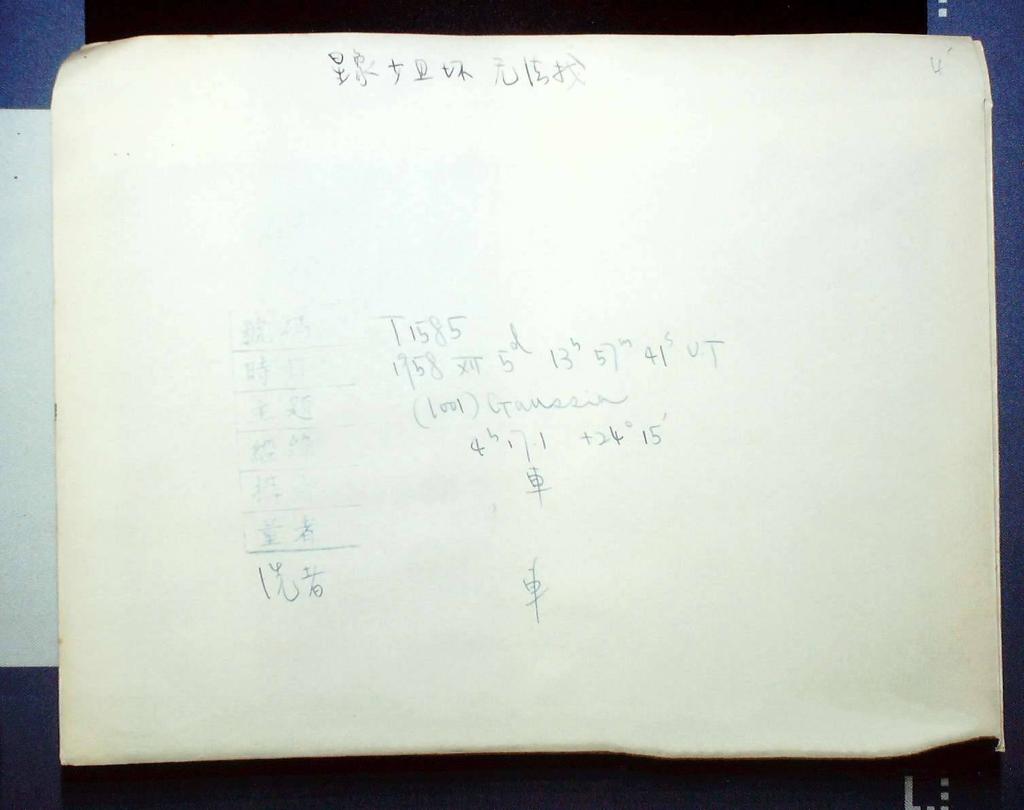 星象 坏 无法找
4'
號碼 T1585
時日 1958 XII 5ᵈ 13ʰ 57ᵐ 41ˢ UT
主題 (1001) Gaussia
4ʰ 17.1 +24° 15'
車
量者
洗者 車